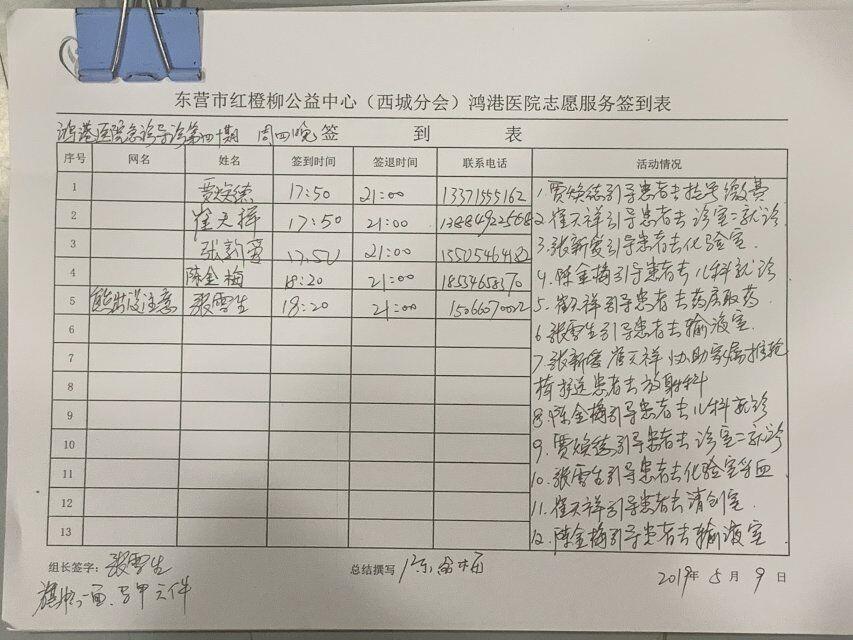 东营市红橙柳公益中心（西城分会）鸿港医院志愿服务签到表
鸿港医院急诊导诊第四十期 周四晚 签 到 表
序号 网名 姓名 签到时间 签退时间 联系电话 活动情况
1 贾焕德 17:50 21:00 13371555162
2 崔天祥 17:50 21:00
3 张新爱 17:50 21:00 15505464182
4 陈金梅 18:20 21:00 18554658370
5 能出没注意 张雪生 18:20 21:00 15066070002
6
7
8
9
10
11
12
13
1. 贾焕德引导患者去挂号缴费
2. 崔天祥引导患者去诊室二就诊
3. 张新爱引导患者去化验室.
4. 陈金梅引导患者去儿科就诊
5. 崔天祥引导患者去药房取药
6. 张雪生引导患者去输液室.
7. 张新爱 崔天祥 协助家属推轮
椅接送患者去放射科
8. 陈金梅引导患者去儿科就诊
9. 贾焕德引导患者去诊室二就诊
10. 张雪生引导患者去化验室采血
11. 崔天祥引导患者去清创室.
12. 陈金梅引导患者去输液室
组长签字：张雪生 总结撰写 陈金梅 2019年 5月 9日
旗帜一面.马甲六件